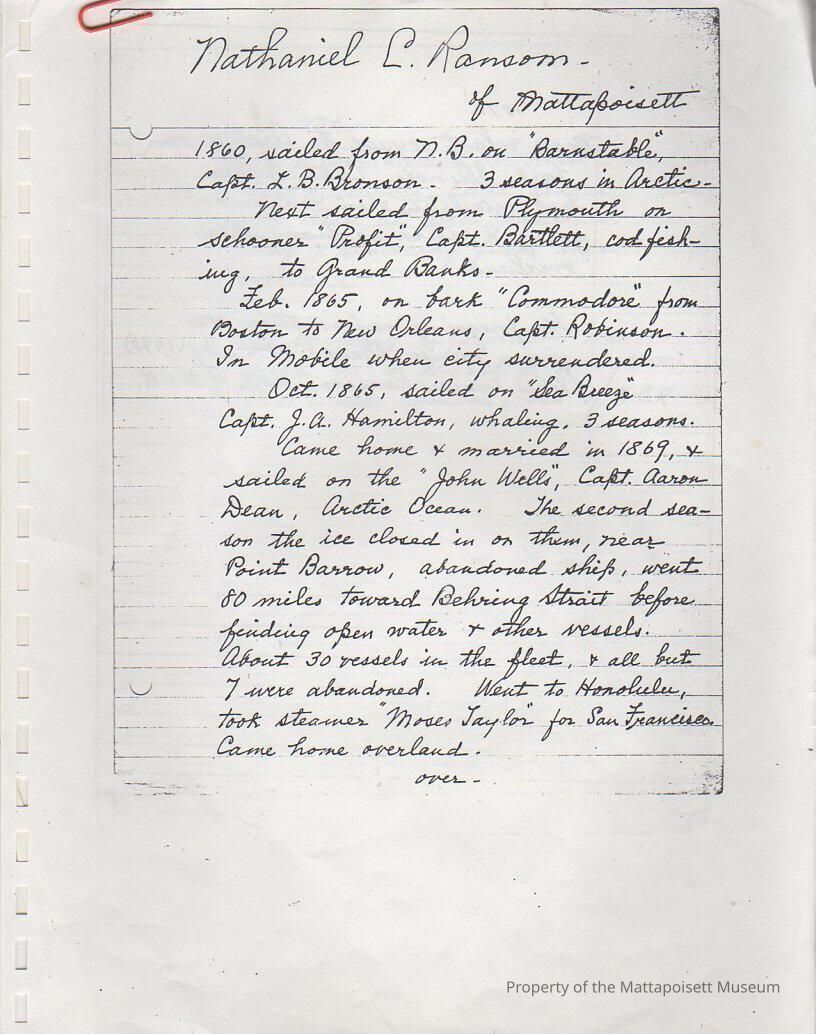 Nathaniel C. Ransom -
of Mattapoisett
1860, sailed from N.B. on "Barnstable",
Capt. L. B. Bronson - 3 seasons in Arctic -
Next sailed from Plymouth on
schooner "Profit", Capt. Bartlett, cod fish-
ing, to Grand Banks -
Feb. 1865, on bark "Commodore" from
Boston to New Orleans, Capt. Robinson.
In Mobile when city surrendered.
Oct. 1865, sailed on "Sea Breeze"
Capt. J. A. Hamilton, whaling, 3 seasons.
Came home & married in 1869, &
sailed on the "John Wells", Capt. Aaron
Dean, Arctic Ocean. The second sea-
son the ice closed in on them, near
Point Barrow, abandoned ship, went
80 miles toward Behring Strait before
finding open water & other vessels.
About 30 vessels in the fleet, & all but
7 were abandoned. Went to Honolulu,
took steamer "Moses Taylor" for San Francisco.
Came home overland.
over -
Property of the Mattapoisett Museum